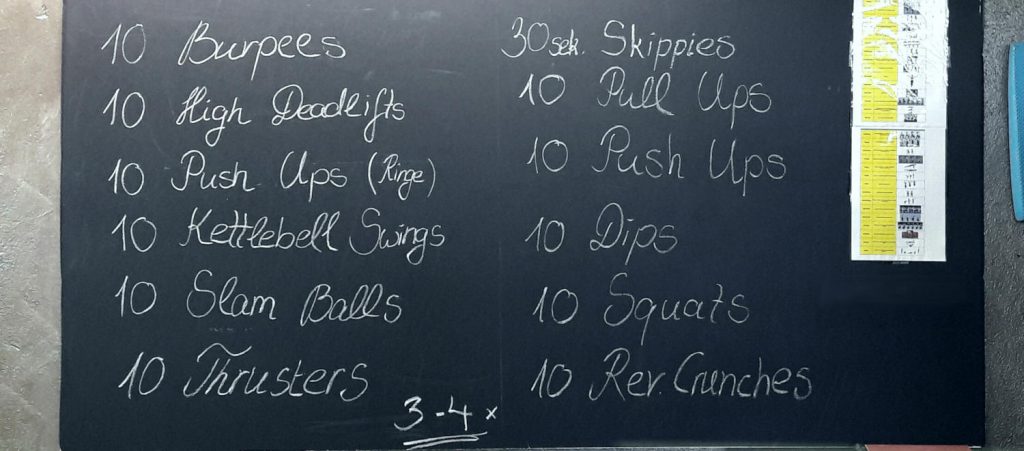 10 Burpees
10 High Deadlifts
10 Push Ups (Ringe)
10 Kettlebell Swings
10 Slam Balls
10 Thrusters
30 sek. Skippies
10 Pull Ups
10 Push Ups
10 Dips
10 Squats
10 Rev. Crunches
3-4 x